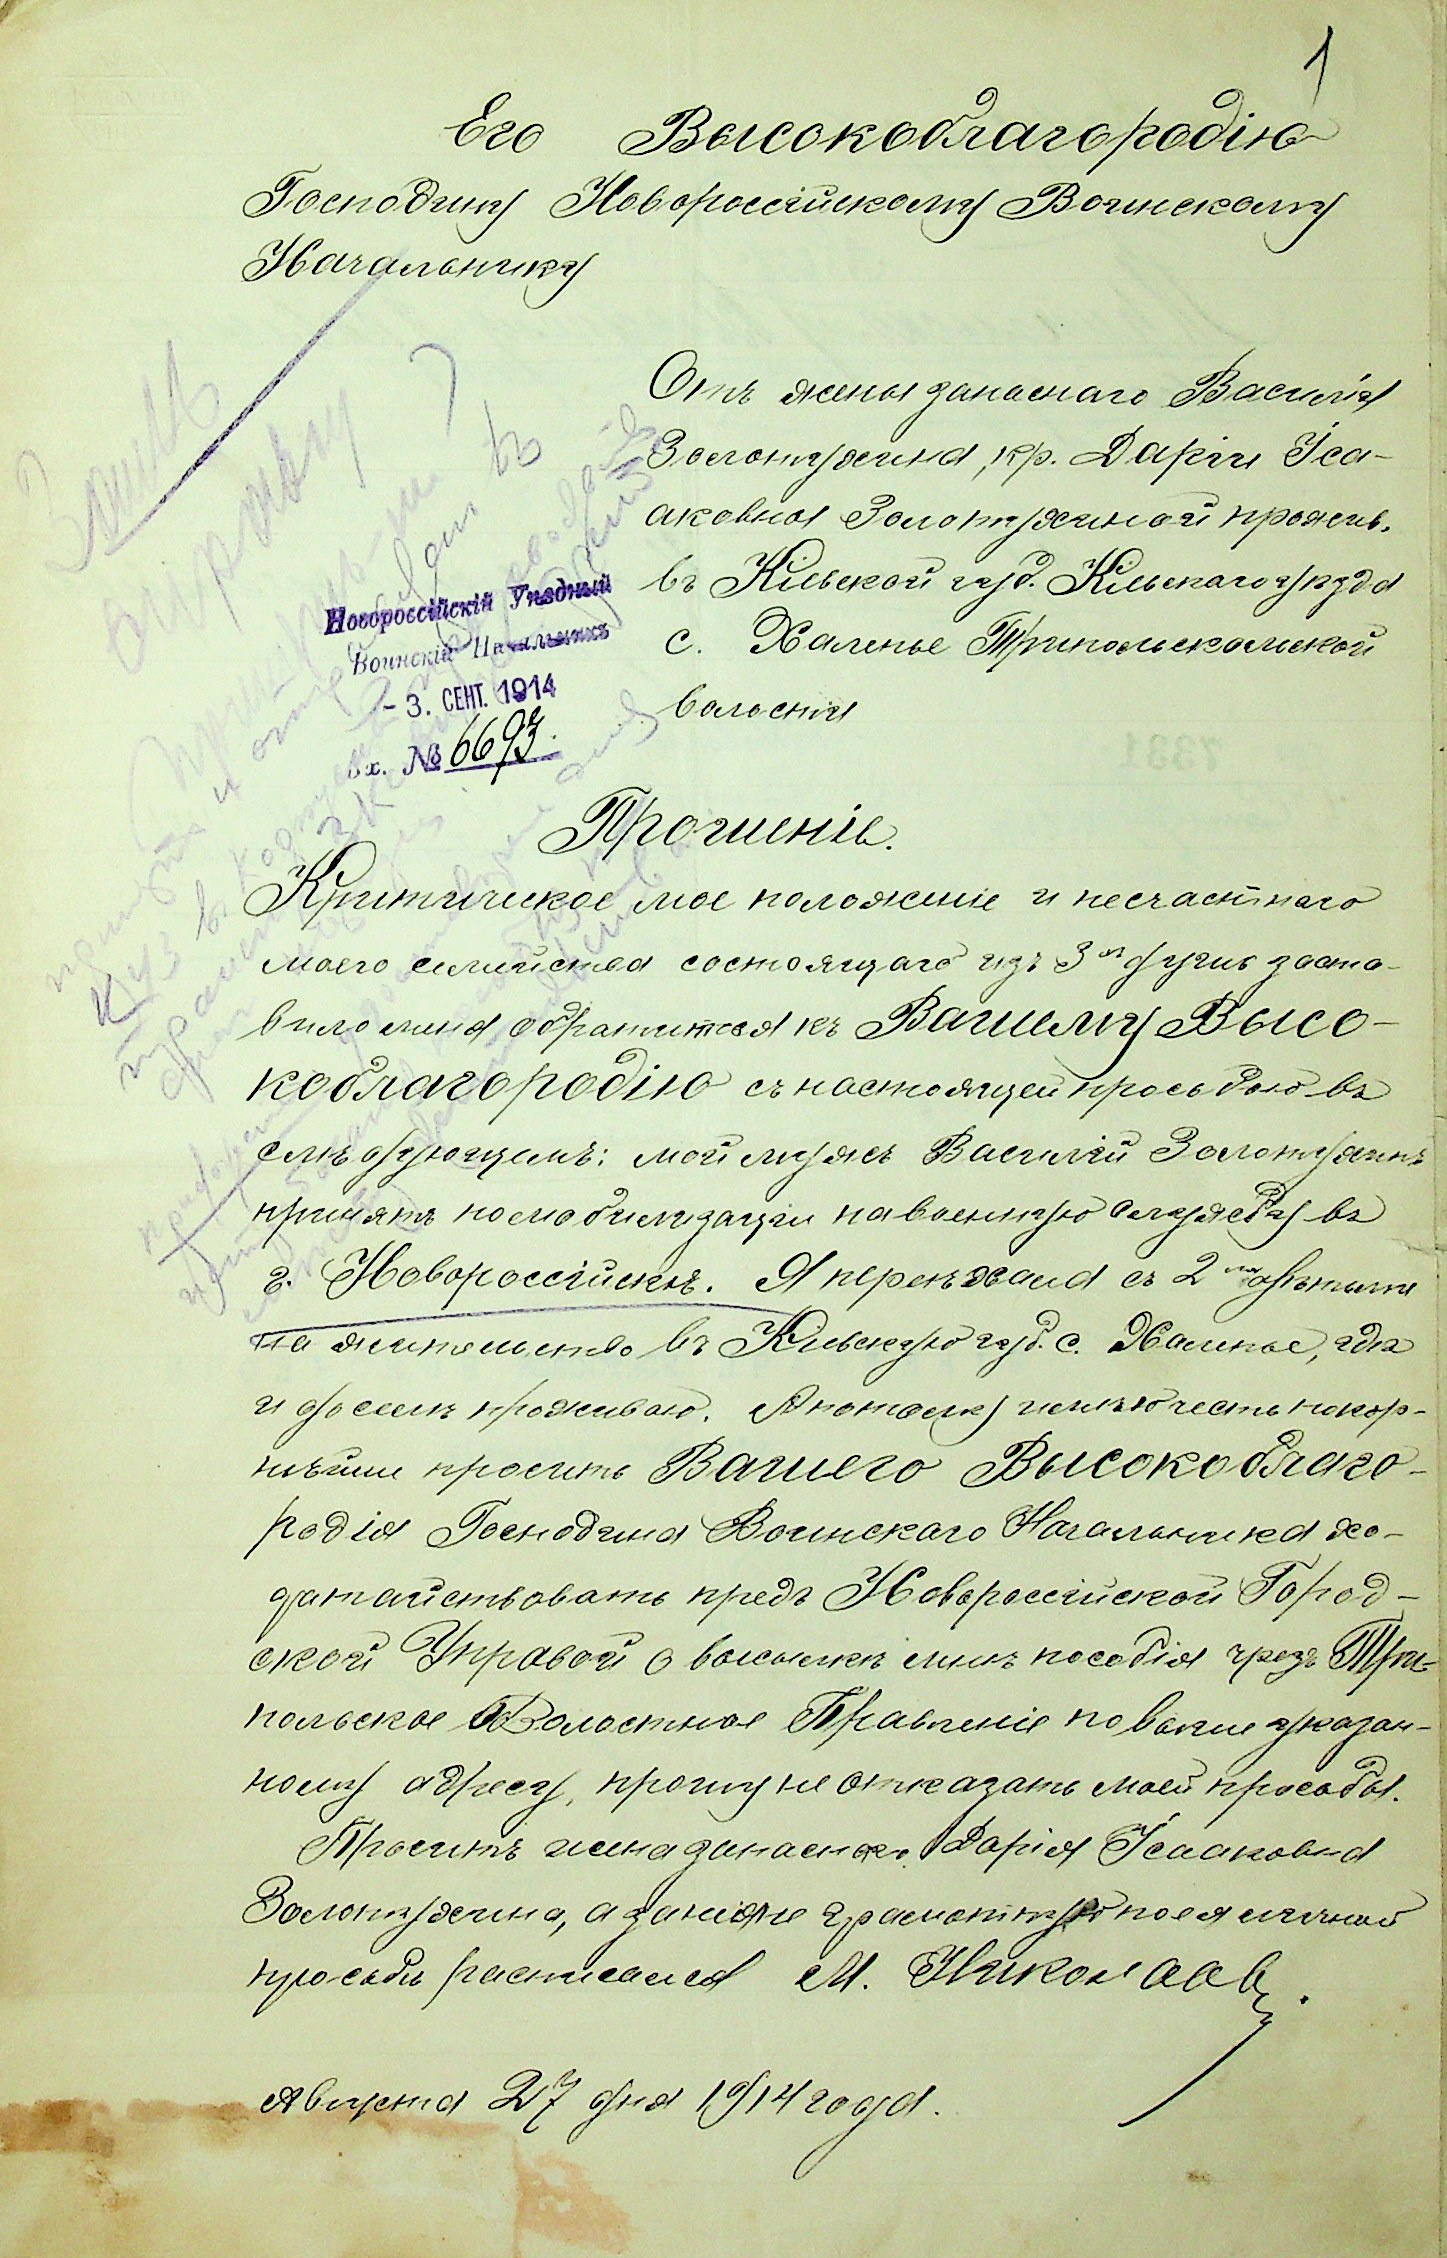 1
Его Высокоблагородію
Господину Новороссійскому Воинскому
Начальнику
Отъ жены запаснаго Василія
Золотужина, кр. Даріи Іса-
аковны Золотужиной прожив.
въ Кіевской губ. Кіевскаго уѣзда
с. Халепье Трипольскольской
волости
Новороссійскій Уѣздный
Воинскій Начальникъ
- 3. СЕНТ. 1914
Вх. № 6693.
Прошеніе.
Критическое мое положеніе и несчастнаго
моего семейства состоящаго изъ 3х душъ заста-
вило меня обратится къ Вашему Высо-
коблагородію съ настоящей просьбою въ
слѣдующемъ: мой мужъ Василій Золотужинъ
принятъ по мобилизаціи на военную службу въ
г. Новороссійскѣ. Я переѣхала съ 2мя дѣтьми
на жительство въ Кіевскую губ. с. Халепье, гдѣ
и доселѣ проживаю. А потому имѣю честь покор-
нѣйше просить Вашего Высокоблаго-
родія Господина Воинскаго Начальника хо-
датайствовать предъ Новороссійской Город-
ской Управой о высылкѣ мнѣ пособія чрезъ Три-
польское Волостное Правленіе по выше указан-
ному адресу, прошу не отказать моей просьбы.
Проситъ жена запаснаго Дарія Ісааковна
Золотужина, а за неграмотную по ея личной
просьбѣ расписался М. Николаевъ.
Августа 27 дня 1914 года.